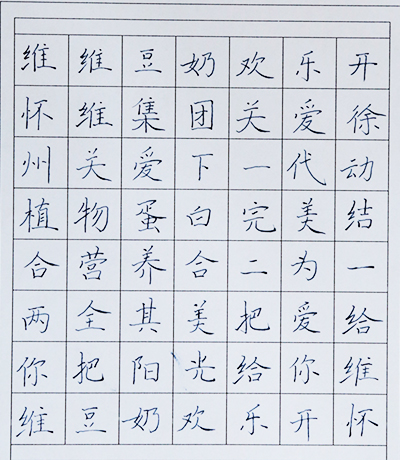 维维豆奶欢乐开
怀维集团关爱徐
州关爱下一代动
植物蛋白完美结
合营养合二为一
两全其美把爱给
你把阳光给你维
维豆奶欢乐开怀